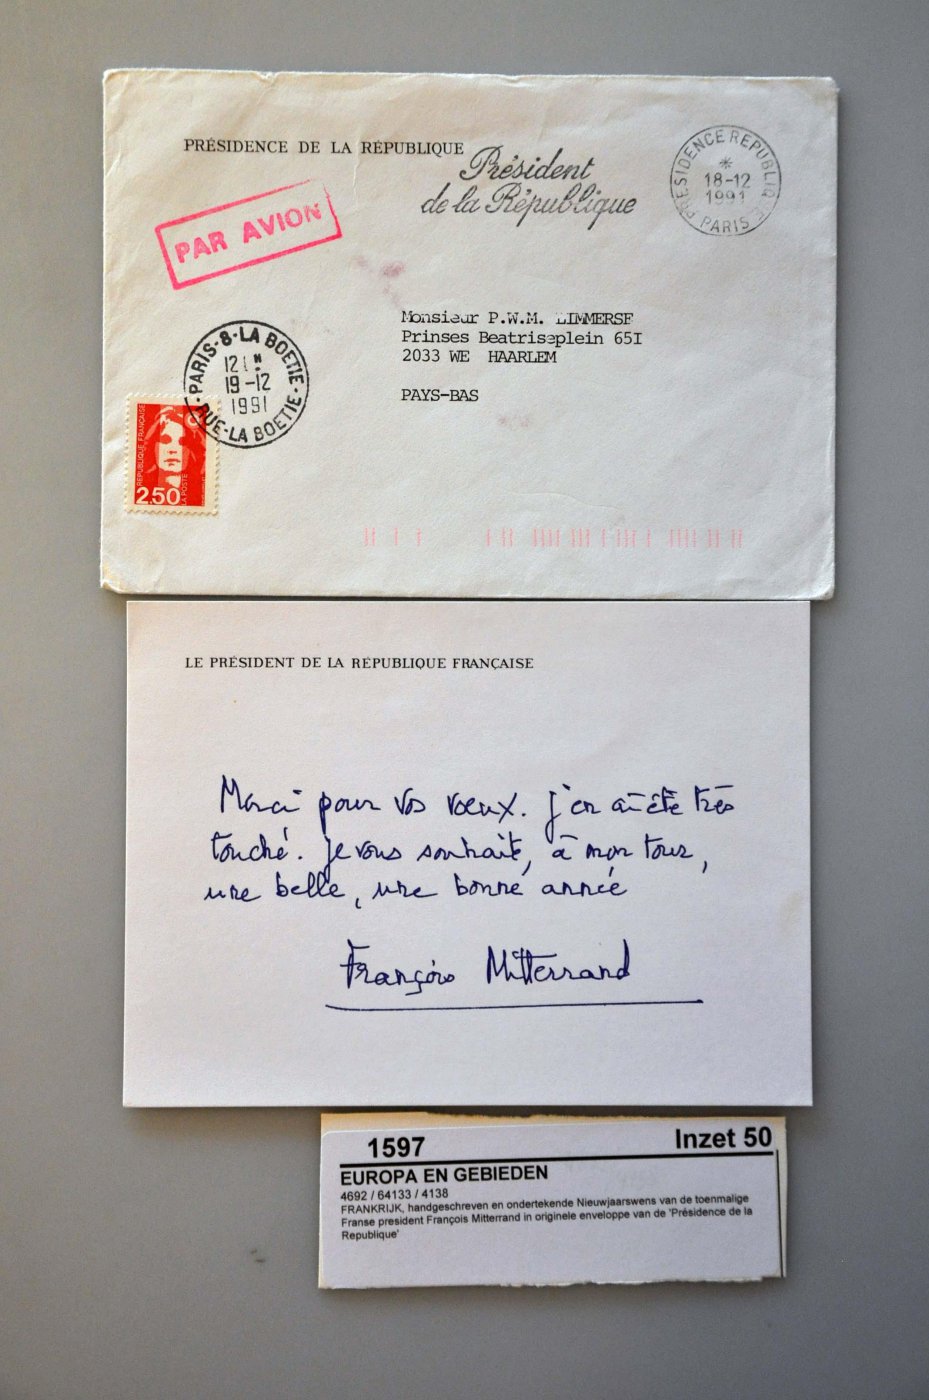 PRÉSIDENCE DE LA RÉPUBLIQUE
Président
de la République
PRÉSIDENCE REPUBLIQUE
*
18-12
1991
PARIS
PAR AVION
Monsieur P.W.M.
Prinses Beatriseplein 65I
2033 WE HAARLEM
PAYS-BAS
PARIS-8-LA BOETIE
19-12
1991
RUE-LA BOETIE
REPUBLIQUE FRANÇAISE
2,50
LA POSTE
LE PRÉSIDENT DE LA RÉPUBLIQUE FRANÇAISE
Merci pour vos voeux. J'en ai été très
touché. Je vous souhaite, à mon tour,
une belle, une bonne année
François Mitterrand
1597 Inzet 50
EUROPA EN GEBIEDEN
4692 / 64133 / 4138
FRANKRIJK, handgeschreven en ondertekende Nieuwjaarswens van de toenmalige
Franse president François Mitterrand in originele enveloppe van de 'Présidence de la
Republique'